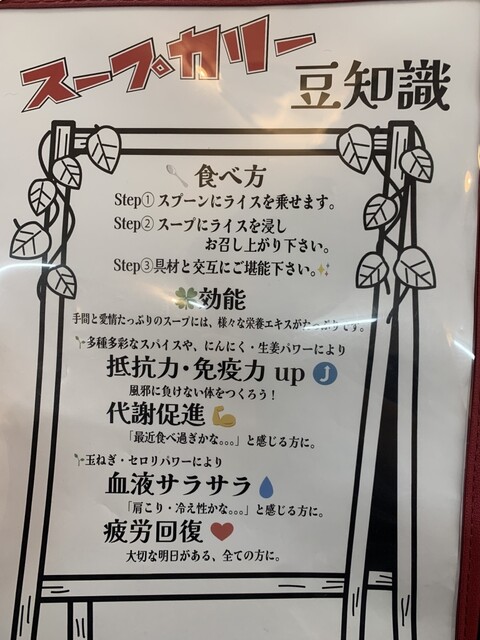 スープカリー
豆知識
食べ方
Step① スプーンにライスを乗せます。
Step② スープにライスを浸し
お召し上がり下さい。
Step③具材と交互にご堪能下さい。
効能
手間と愛情たっぷりのスープには、様々な栄養エキスがたっぷりです。
多種多彩なスパイスや、にんにく・生姜パワーにより
抵抗力・免疫力 up
風邪に負けない体をつくろう!
代謝促進
「最近食べ過ぎかな。。。」と感じる方に。
玉ねぎ・セロリパワーにより
血液サラサラ
「肩こり・冷え性かな。。。」と感じる方に。
疲労回復
大切な明日がある、全ての方に。